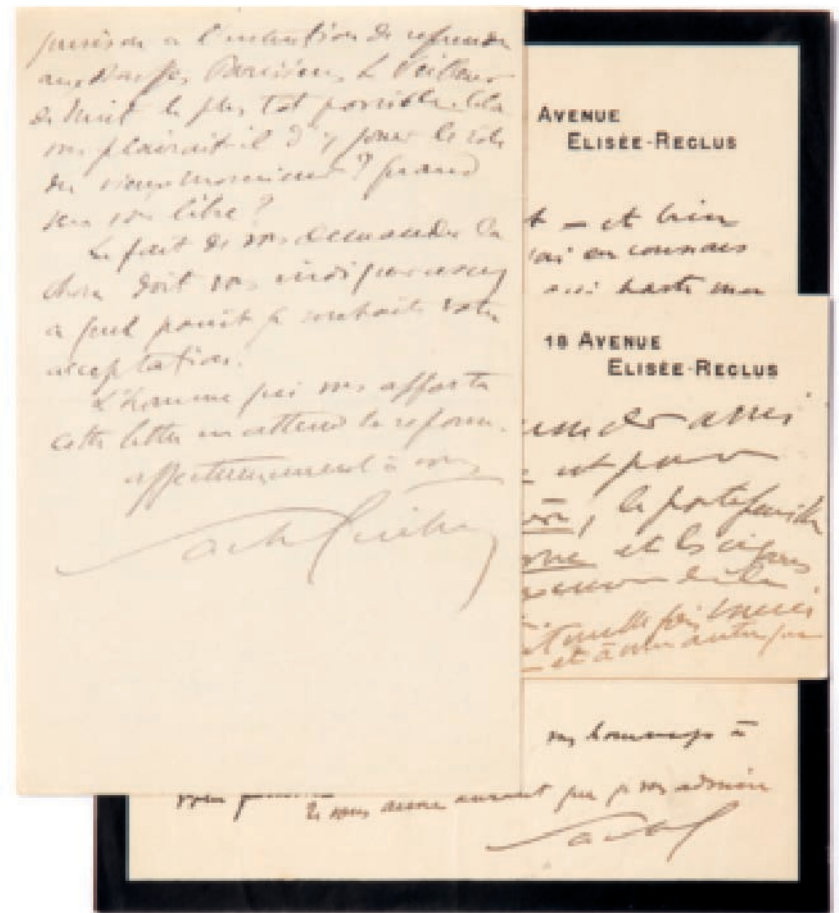 a l'intention de reprendre
aux Bouffes Parisiens, Le Veilleur
de Nuit le plus tot possible. Cela
vous plairait-il d'y jouer le rôle
du vieux monsieur ? quand
serez vous libre ?
Le fait de vous demander la
chose doit vous indiquer assez
a quel point je souhaite votre
acceptation.
L'homme qui vous apporte
cette lettre en attend la réponse.
affectueusement à vous
Sacha Guitry
AVENUE
ELISÉE-RECLUS
et bien
18 AVENUE
ELISÉE-RECLUS
amis
et pour
le portefeuille
et les cigares
de la
et mille fois merci
et à une autre fois
mes hommages à
je vous admire
Sacha